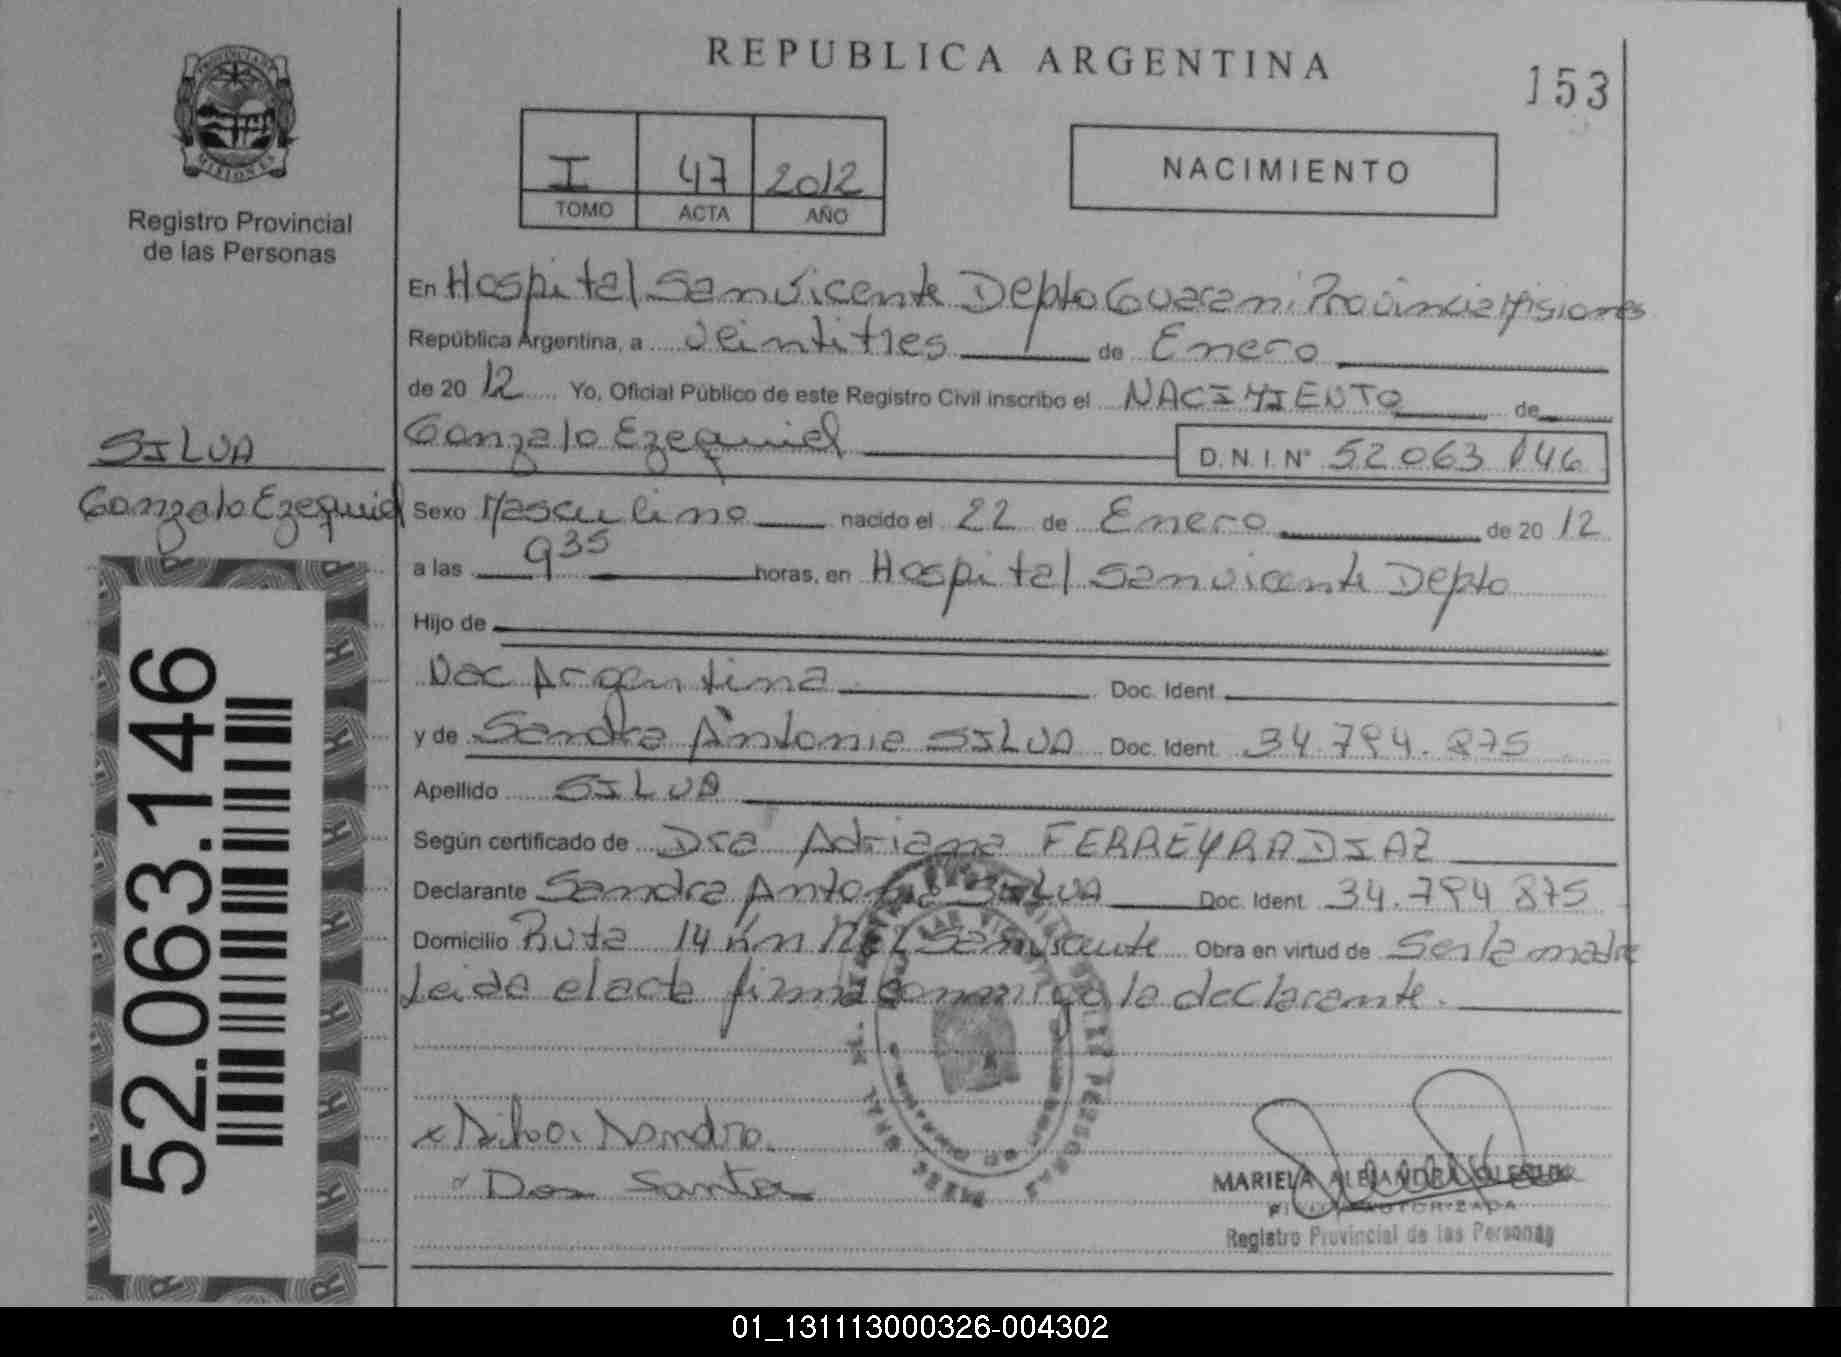 REPUBLICA ARGENTINA
153
PROVINCIA DE
MISIONES
Registro Provincial
de las Personas
I 47 2012
TOMO ACTA AÑO
NACIMIENTO
En Hospital San Vicente Depto Guarani Provincia Misiones
República Argentina, a veintitres de Enero
de 20 12 Yo, Oficial Público de este Registro Civil inscribo el NACIMIENTO de
Gonzalo Ezequiel D.N.I. N° 52 063 146
SILVA
Gonzalo Ezequiel
Sexo Masculino nacido el 22 de Enero de 20 12
a las 9 35 horas, en Hospital San Vicente Depto
Hijo de
Nac Argentina Doc. Ident.
y de Sandra Antonia SILVA Doc. Ident. 34.794.875
Apellido SILVA
Según certificado de Dra Adriana FERREYRA DIAZ
Declarante Sandra Antonia SILVA Doc. Ident. 34.794 875
Domicilio Ruta 14 Km San Vicente Obra en virtud de Ser la madre
Leida el acta firma conmigo la declarante.
52.063.146
x Silva. Sandra.
Dos Santos
MARIELA ALEJANDRA
AUTORIZADA
Registro Provincial de las Personas
01_131113000326-004302